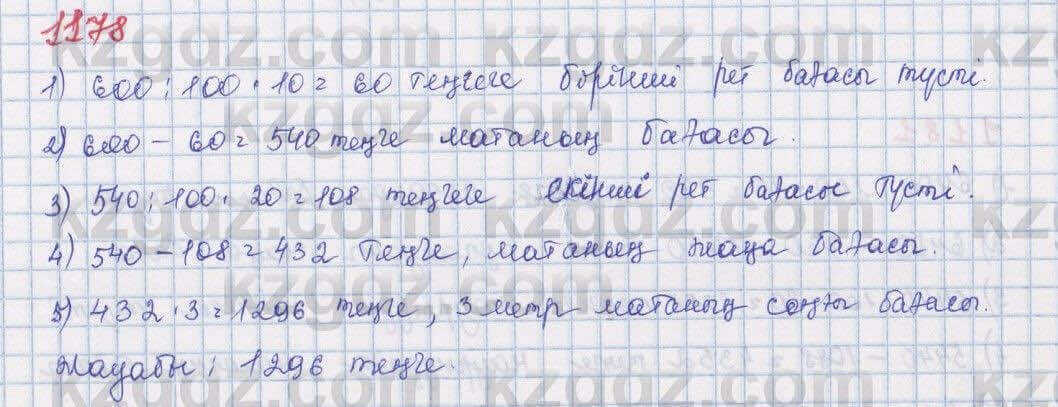 1178
1) 600 : 100 · 10 = 60 теңгеге бірінші рет бағасы түсті.
2) 600 – 60 = 540 теңге матаның бағасы.
3) 540 : 100 · 20 = 108 теңгеге екінші рет бағасы түсті.
4) 540 – 108 = 432 теңге, матаның жаңа бағасы.
5) 432 · 3 = 1296 теңге, 3 метр матаның соңғы бағасы.
Жауабы: 1296 теңге.